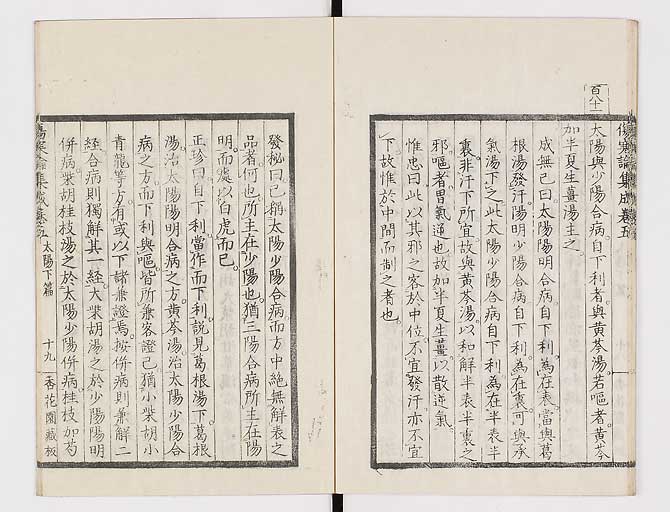 百八十一
太陽與少陽合病自下利者與黃芩湯若嘔者黃芩
加半夏生薑湯主之
成無己曰太陽陽明合病自下利為在表當與葛
根湯發汗陽明少陽合病自下利為在裏可與承
氣湯下之此太陽少陽合病自下利為在半表半
裏非汗下所宜故與黃芩湯以和解半表半裏之
邪嘔者胃氣逆也故加半夏生薑以散逆氣
惟忠曰此以其邪之客於中位不宜發汗亦不宜
下故惟於中間而制之者也
傷寒論集成卷五
發秘曰已稱太陽少陽合病而方中絶無解表之
品者何也所主在少陽也猶三陽合病所主在陽
明而處以白虎而已
正珍曰自下利當作而下利說見葛根湯下葛根
湯治太陽陽明合病之方黃芩湯治太陽少陽合
病之方而下利與嘔皆所兼客證已猶小柴胡小
青龍等方有或以下諸兼證焉按併病則兼解二
經合病則獨解其一經大柴胡湯之於少陽陽明
併病柴胡桂枝湯之於太陽少陽併病桂枝加芍
傷寒論集成卷五 太陽下篇 十九 香花園藏板